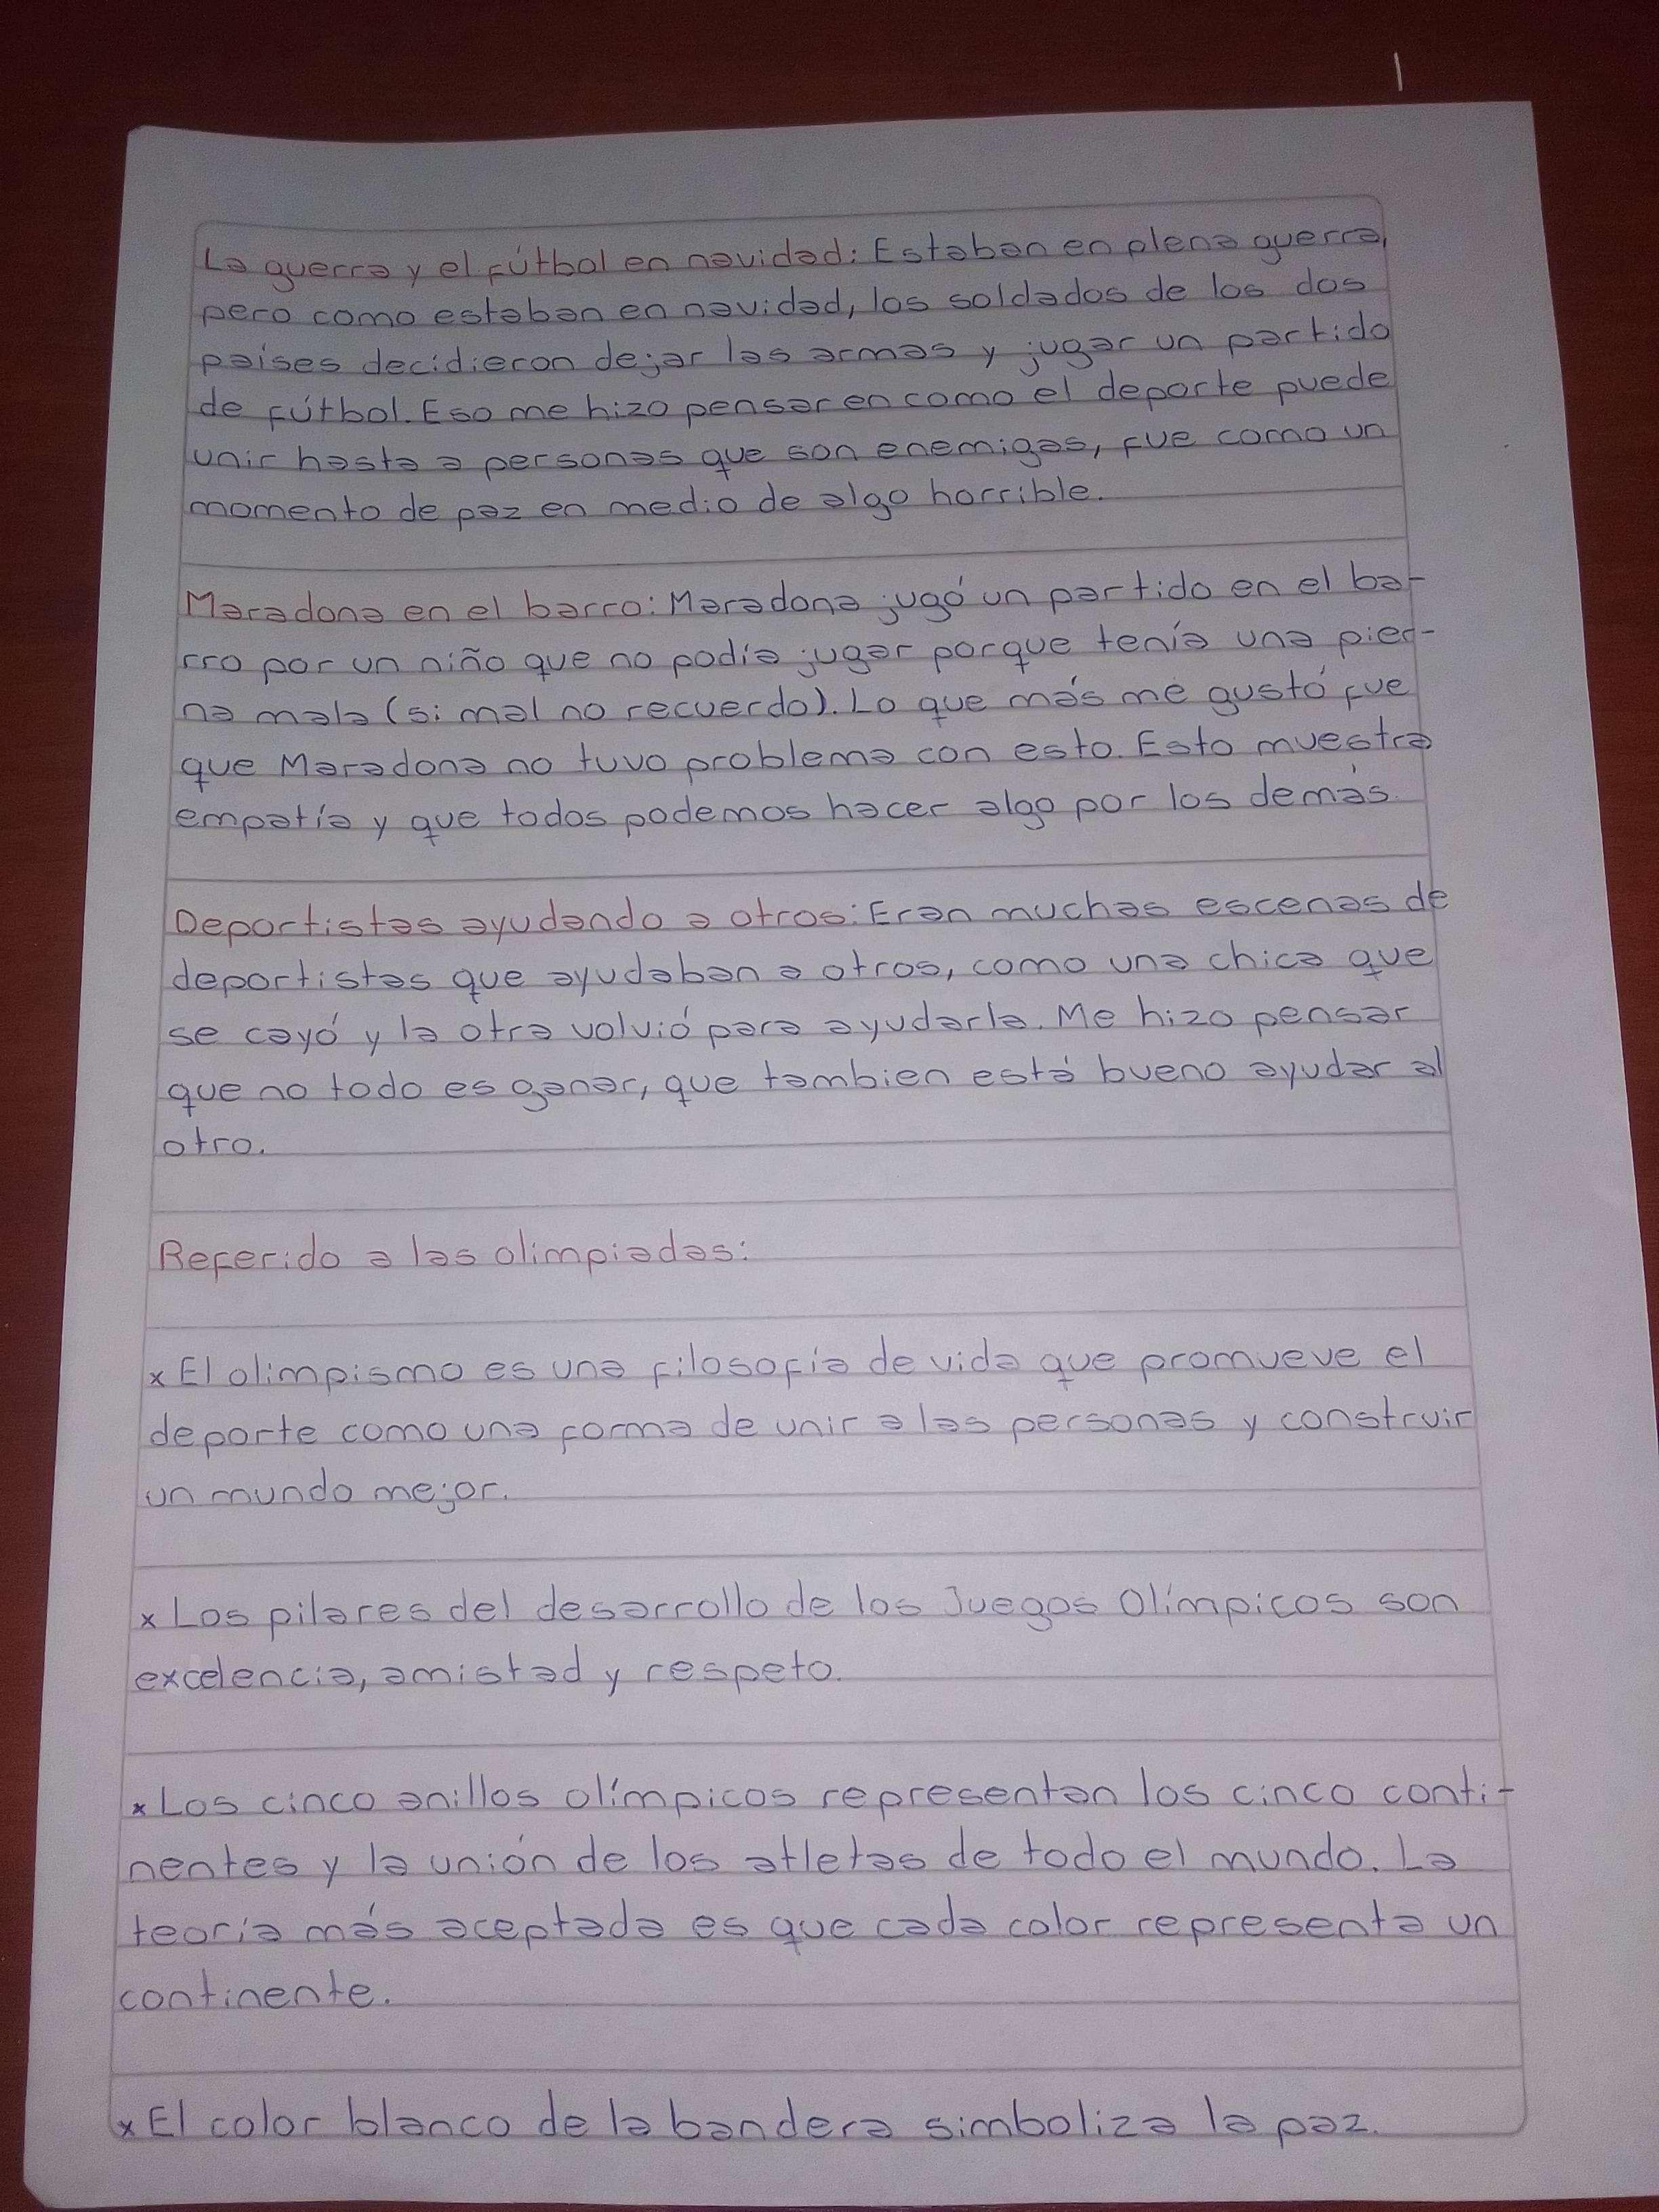 La guerra y el fútbol en navidad: Estaban en plena guerra,
pero como estaban en navidad, los soldados de los dos
paises decidieron dejar las armas y jugar un partido
de fútbol. Eso me hizo pensar en como el deporte puede
unir hasta a personas que son enemigas, fue como un
momento de paz en medio de algo horrible.
Maradona en el barro: Maradona jugó un partido en el ba-
rro por un niño que no podía jugar porque tenía una pier-
na mala (si mal no recuerdo). Lo que más me gustó fue
que Maradona no tuvo problema con esto. Esto muestra
empatía y que todos podemos hacer algo por los demás.
Deportistas ayudando a otros: Eran muchas escenas de
deportistas que ayudaban a otros, como una chica que
se cayó y la otra volvió para ayudarla. Me hizo pensar
que no todo es ganar, que tambien está bueno ayudar al
otro.
Referido a las olimpiadas:
x El olimpismo es una filosofía de vida que promueve el
deporte como una forma de unir a las personas y construir
un mundo mejor.
x Los pilares del desarrollo de los Juegos Olímpicos son
excelencia, amistad y respeto.
x Los cinco anillos olímpicos representan los cinco conti-
nentes y la unión de los atletas de todo el mundo. La
teoría más aceptada es que cada color representa un
continente.
x El color blanco de la bandera simboliza la paz.